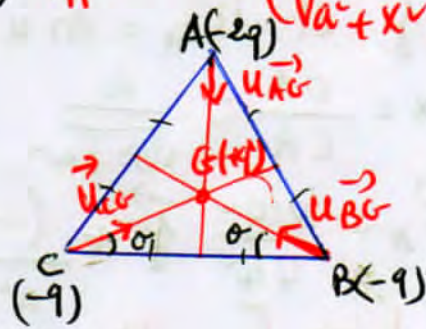 (√a² + x²
A(-2q)
u AG→
G(+q)
u CG→
u BG→
θ
θ
C
(-q)
B(-q)